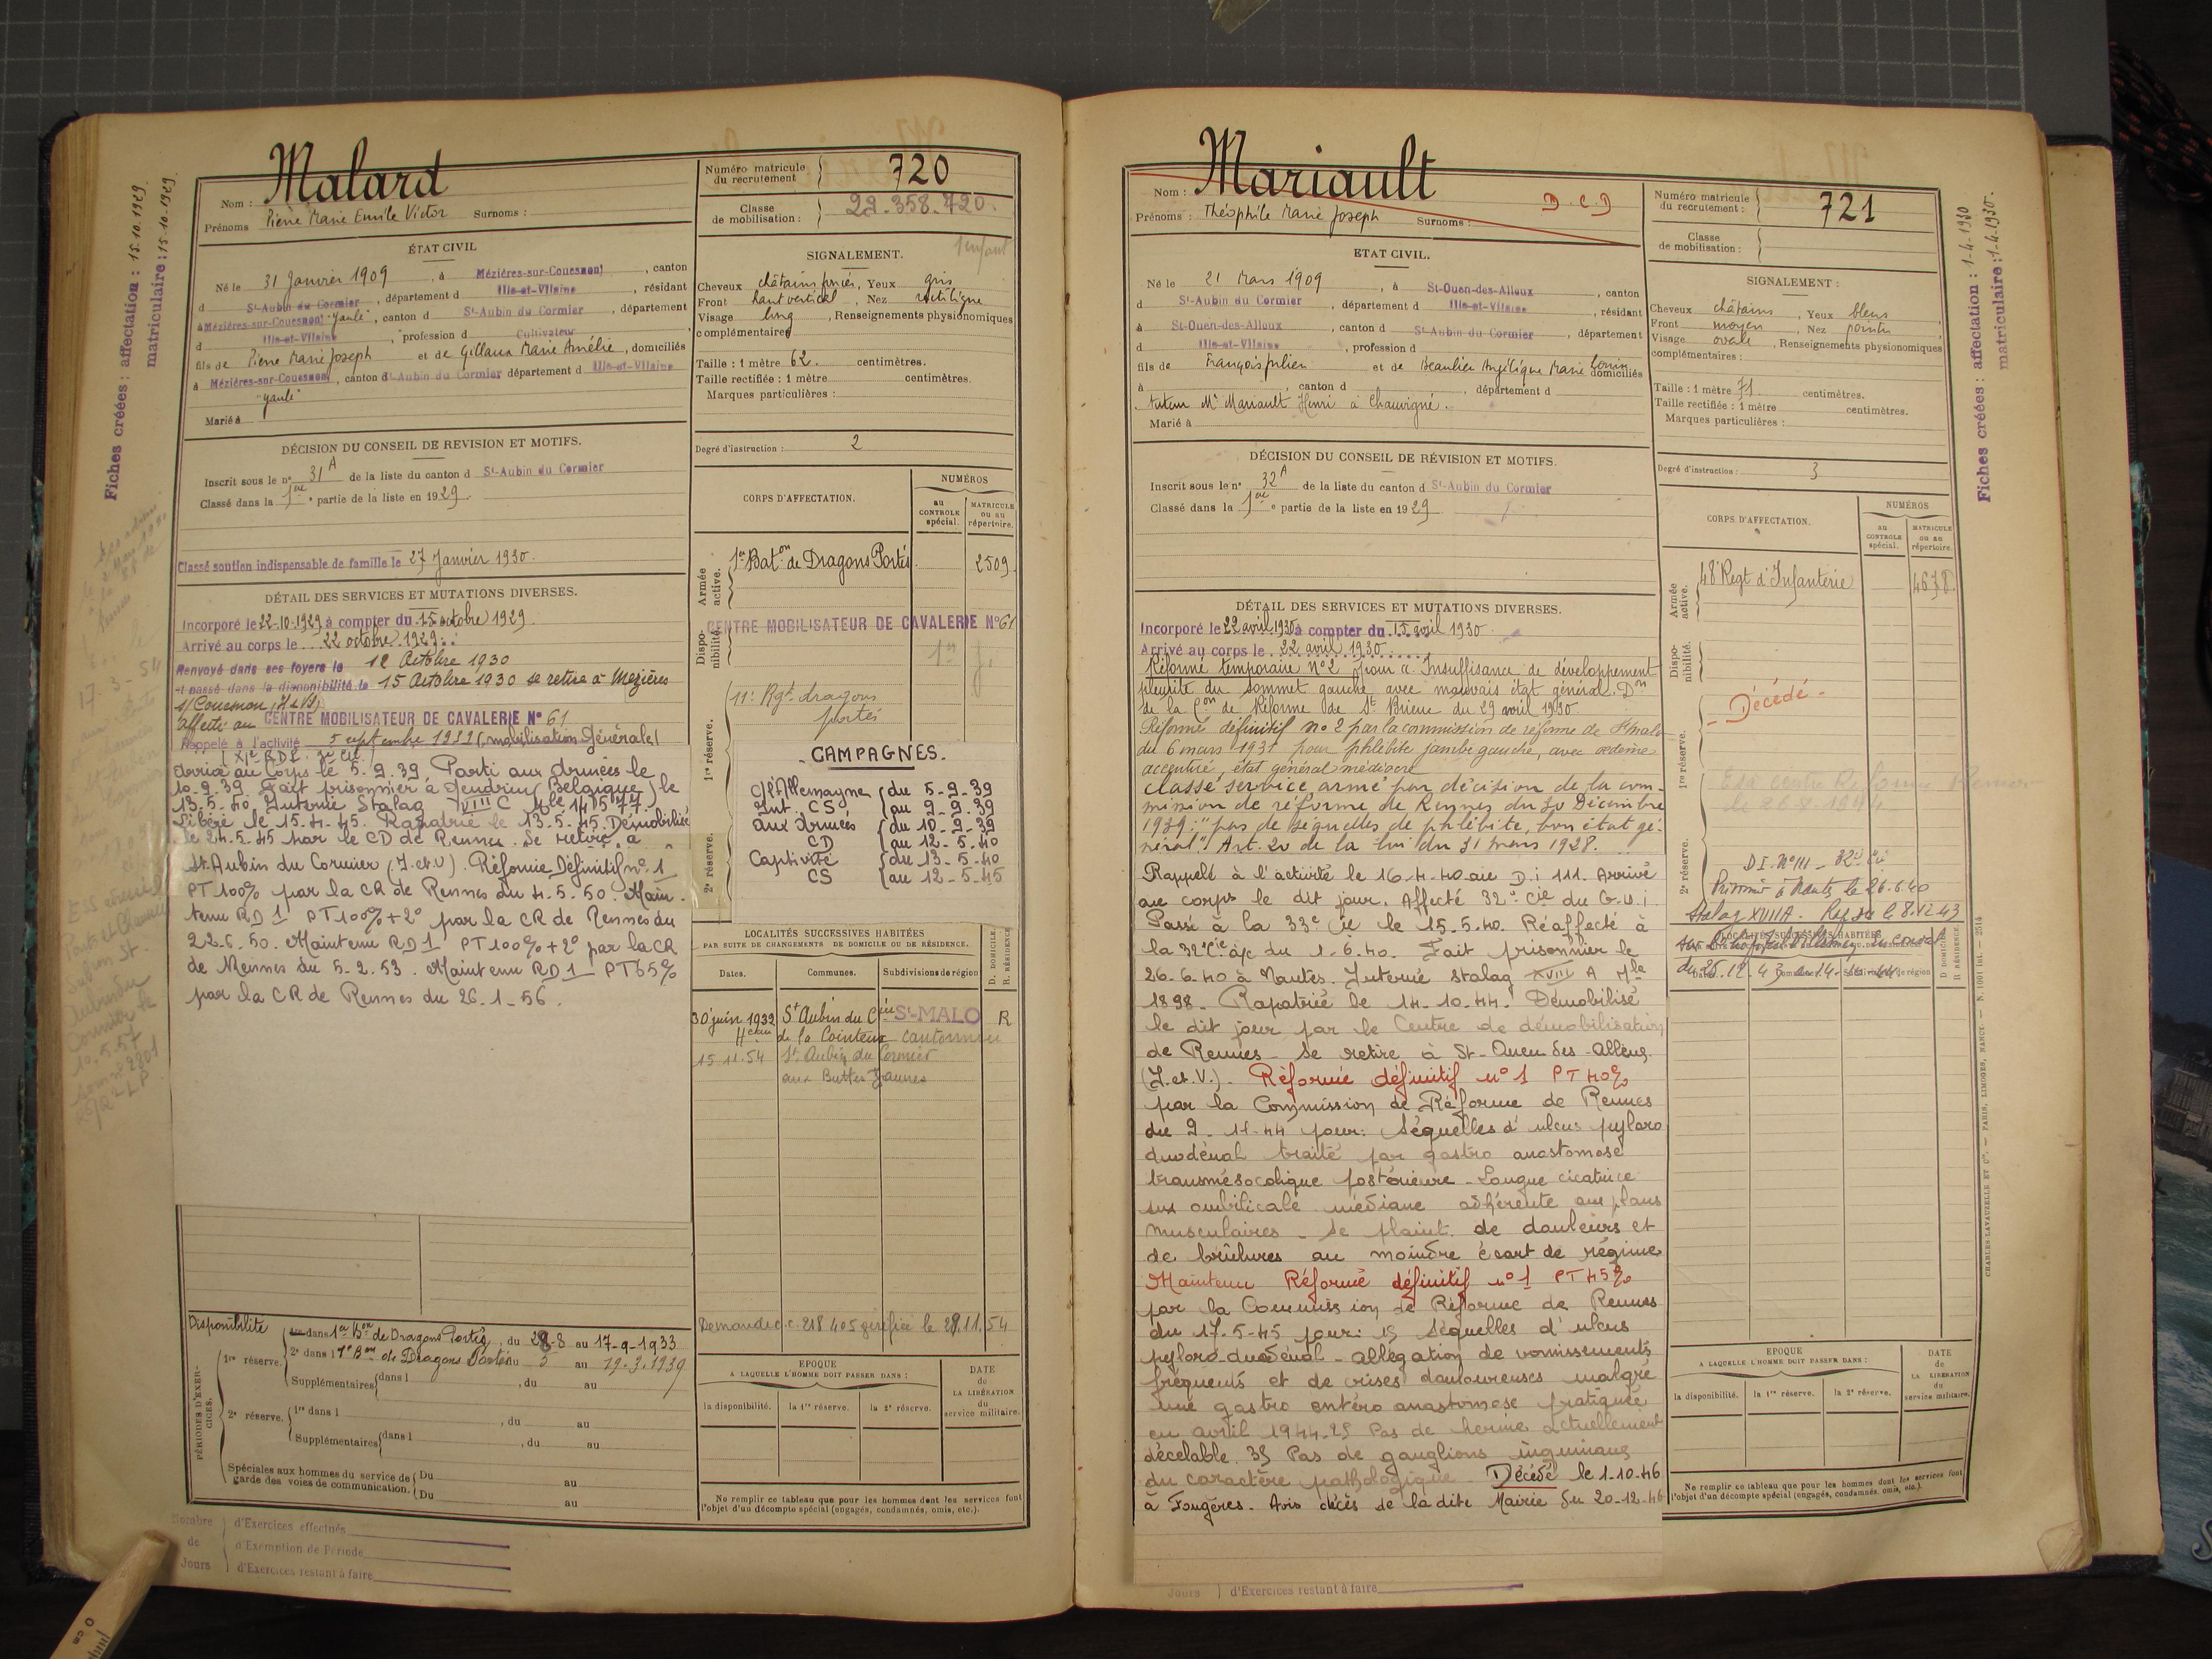 Fiches créées : affectation : 15.10.1929.
matriculaire : 15-10-1929.
Malard
Nom :
Prénoms Pierre Marie Emile Victor Surnoms :
ÉTAT CIVIL
Né le 31 Janvier 1909, à Mézières-sur-Couesnon, canton
d St-Aubin du Cormier, département d Ille-et-Vilaine, résidant
à Mézières-sur-Couesnon, canton d St-Aubin du Cormier, département
d Ille-et-Vilaine, profession d Cultivateur,
fils de Pierre Marie Joseph et de Gillaux Marie Amélie, domiciliés
à Mézières-sur-Couesnon, canton d St-Aubin du Cormier département d Ille-et-Vilaine
Marié à
DÉCISION DU CONSEIL DE REVISION ET MOTIFS.
Inscrit sous le n° 31 A de la liste du canton d St-Aubin du Cormier
Classé dans la 1ère partie de la liste en 1929.
Classé soutien indispensable de famille le 27 Janvier 1930.
DÉTAIL DES SERVICES ET MUTATIONS DIVERSES.
Incorporé le 22-10-1929 à compter du 15 octobre 1929.
Arrivé au corps le 22 octobre 1929.
Renvoyé dans ses foyers le 12 Octobre 1930
et passé dans la disponibilité le 15 Octobre 1930 se retire à Mézières
s/ Couesnon (I & V)
affecté au CENTRE MOBILISATEUR DE CAVALERIE N° 61
Rappelé à l'activité 5 septembre 1939 (mobilisation Générale)
arrivé au Corps le 5.9.39. Parti aux Armées le
10.9.39. Fait prisonnier à Jendrin (Belgique) le
13.5.40. Interné Stalag VIII C Mle 14577.
Libéré le 15.4.45. Rapatrié le 13.5.45. Démobilisé
le 24.5.45 par le CD de Rennes. Se retire à
St. Aubin du Cormier (I. et V). Réformé Définitif n° 1
PT 100% par la CR de Rennes du 4.5.50. Main-
tenu RD 1 PT 100% + 2° par la CR de Rennes du
22.6.50. Maintenu RD 1 PT 100% + 2° par la CR
de Rennes du 5.2.53. Maintenu RD 1 PT 65%
par la CR de Rennes du 26.1.56.
PÉRIODES D'EXERCICES.
Disponibilité
1re réserve. 1re dans 1er Bon de Dragons Portés, du 28-8 au 17-9-1933
2e dans 1er Bon de Dragons Portés du 3 au 19.3.1939
Supplémentaires dans l , du au
2e réserve. 1re dans l , du au
Supplémentaires dans l , du au
Spéciales aux hommes du service de garde des voies de communication. Du au
Du au
Nombre de Jours
d'Exercices effectués
d'Exemption de Période
d'Exercices restant à faire
Numéro matricule du recrutement 720
Classe de mobilisation : 29.358.720.
1 enfant
SIGNALEMENT.
Cheveux châtains foncés, Yeux gris
Front haut vertical, Nez rectiligne
Visage long, Renseignements physionomiques
complémentaires
Taille : 1 mètre 62. centimètres.
Taille rectifiée : 1 mètre centimètres.
Marques particulières :
Degré d'instruction : 2
CORPS D'AFFECTATION.
NUMÉROS
au CONTROLE spécial.
MATRICULE ou au répertoire.
Armée active.
1er Baton de Dragons Portés 2509
Disponibilité.
CENTRE MOBILISATEUR DE CAVALERIE N° 61
1re réserve.
11e Rgt dragons
portés
2e réserve.
CAMPAGNES.
C/ l'Allemagne (du 5-9-39
Int. CS (au 9-9-39
aux Armées (du 10-9-39
CD (au 12-5-40
Captivité (du 13-5-40
CS (au 12-5-45
LOCALITÉS SUCCESSIVES HABITÉES
PAR SUITE DE CHANGEMENTS DE DOMICILE OU DE RÉSIDENCE.
Dates. Communes. Subdivisions de région
D. DOMICILE. R. RÉSIDENCE
30 juin 1932 St Aubin du Cier St-MALO R
de la Cointerie cantonnier
15.11.54 St Aubin du Cormier
aux Buttes Jaunes
EPOQUE
A LAQUELLE L'HOMME DOIT PASSER DANS :
la disponibilité. la 1re réserve. la 2e réserve.
DATE de LA LIBÉRATION du service militaire.
Ne remplir ce tableau que pour les hommes dont les services font
l'objet d'un décompte spécial (engagés, condamnés, omis, etc.).
Mariault
D.C.D
Nom :
Prénoms : Théophile Marie Joseph Surnoms :
ETAT CIVIL.
Né le 21 Mars 1909, à St-Ouen-des-Alleux, canton
d St-Aubin du Cormier, département d Ille-et-Vilaine, résidant
à St-Ouen-des-Alleux, canton d St-Aubin du Cormier, département
d Ille-et-Vilaine, profession d
fils de François Julien et de Beaulieu Angélique Marie Louise domiciliés
à , canton d , département d
tuteur Mr Mariault Henri à Chauvigné.
Marié à
DÉCISION DU CONSEIL DE RÉVISION ET MOTIFS.
Inscrit sous le n° 32 A de la liste du canton d St-Aubin du Cormier
Classé dans la 1ère partie de la liste en 1929
DÉTAIL DES SERVICES ET MUTATIONS DIVERSES.
Incorporé le 22 avril 1930 à compter du 15 avril 1930.
Arrivé au corps le 22 avril 1930.
Réformé temporaire n° 2 pour : Insuffisance de développement
pleurite du sommet gauche avec mauvais état général. Don
de la Con de Réforme de St Brieuc du 29 avril 1930
Réformé définitif n° 2 par la commission de réforme de St malo
du 6 mars 1931 pour phlébite jambe gauche, avec œdème
accentué, état général médiocre
Classé service armé par décision de la com-
mission de réforme de Rennes du 30 Décembre
1939 : "pas de séquelles de phlébite, bon état gé-
néral". Art. 20 de la loi du 31 mars 1928.
Rappelé à l'activité le 16-4-40 au D.i 111. Arrivé
au corps le dit jour. Affecté 32e Cie du G.u.i
Passé à la 33e Cie le 15.5.40. Réaffecté à
la 32e Cie a/c du 1.6.40. Fait prisonnier le
26.6.40 à Nantes. Interné Stalag XVIII A Mle
1898. Rapatrié le 14.10.44. Démobilisé
le dit jour par le Centre de démobilisation
de Rennes - Se retire à St-Ouen des Alleux.
(I. et V.). Réformé définitif n° 1 PT 40%
par la Commission de Réforme de Rennes
du 9.11.44 pour : Séquelles d'ulcus pyloro
duodénal traité par gastro anastomose
transmésocolique postérieure - Longue cicatrice
sus ombilicale médiane adhérente aux plans
musculaires - Se plaint de douleurs et
de brûlures au moindre écart de régime
Maintenu Réformé définitif n° 1 PT 45%
par la Commission de Réforme de Rennes
du 17.5-45 pour : 1° Séquelles d'ulcus
pyloro-duodénal - allégation de vomissements
fréquents et de crises douloureuses malgré
une gastro entéro anastomose pratiquée
en avril 1944. 2° Pas de hernie actuellement
décelable. 3° Pas de ganglions inguinaux
du caractère pathologique. Décédé le 1-10-46
à Fougères. Avis décès de la dite Mairie du 20-12-46
Jours d'Exercices restant à faire
Numéro matricule du recrutement : 721
Classe de mobilisation :
SIGNALEMENT :
Cheveux châtains, Yeux bleus
Front moyen, Nez pointu
Visage ovale, Renseignements physionomiques
complémentaires :
Taille : 1 mètre 71 centimètres.
Taille rectifiée : 1 mètre centimètres.
Marques particulières :
Degré d'instruction : 3
CORPS D'AFFECTATION.
NUMÉROS
au CONTROLE spécial.
MATRICULE ou au répertoire.
Armée active.
48e Regt d'Infanterie 4678
Disponibilité.
Décédé -
1re réserve.
2e réserve.
D.I. N° 111 - 32e Cie
Prisonnier à Nantes le 26.6.40
Stalag XVIII A. Rap sa le 8.12.43
LOCALITÉS SUCCESSIVES HABITÉES
D. DOMICILE. R. RÉSIDENCE.
EPOQUE
A LAQUELLE L'HOMME DOIT PASSER DANS :
la disponibilité. la 1re réserve. la 2e réserve.
DATE de LA LIBÉRATION du service militaire.
Ne remplir ce tableau que pour les hommes dont les services font
l'objet d'un décompte spécial (engagés, condamnés, omis, etc.).
Fiches créées : affectation : 1-4-1930
matriculaire : 1-4-1930.
CHARLES-LAVAUZELLE ET Cie. — PARIS, LIMOGES, NANCY. — N. 1001 int. — 2514